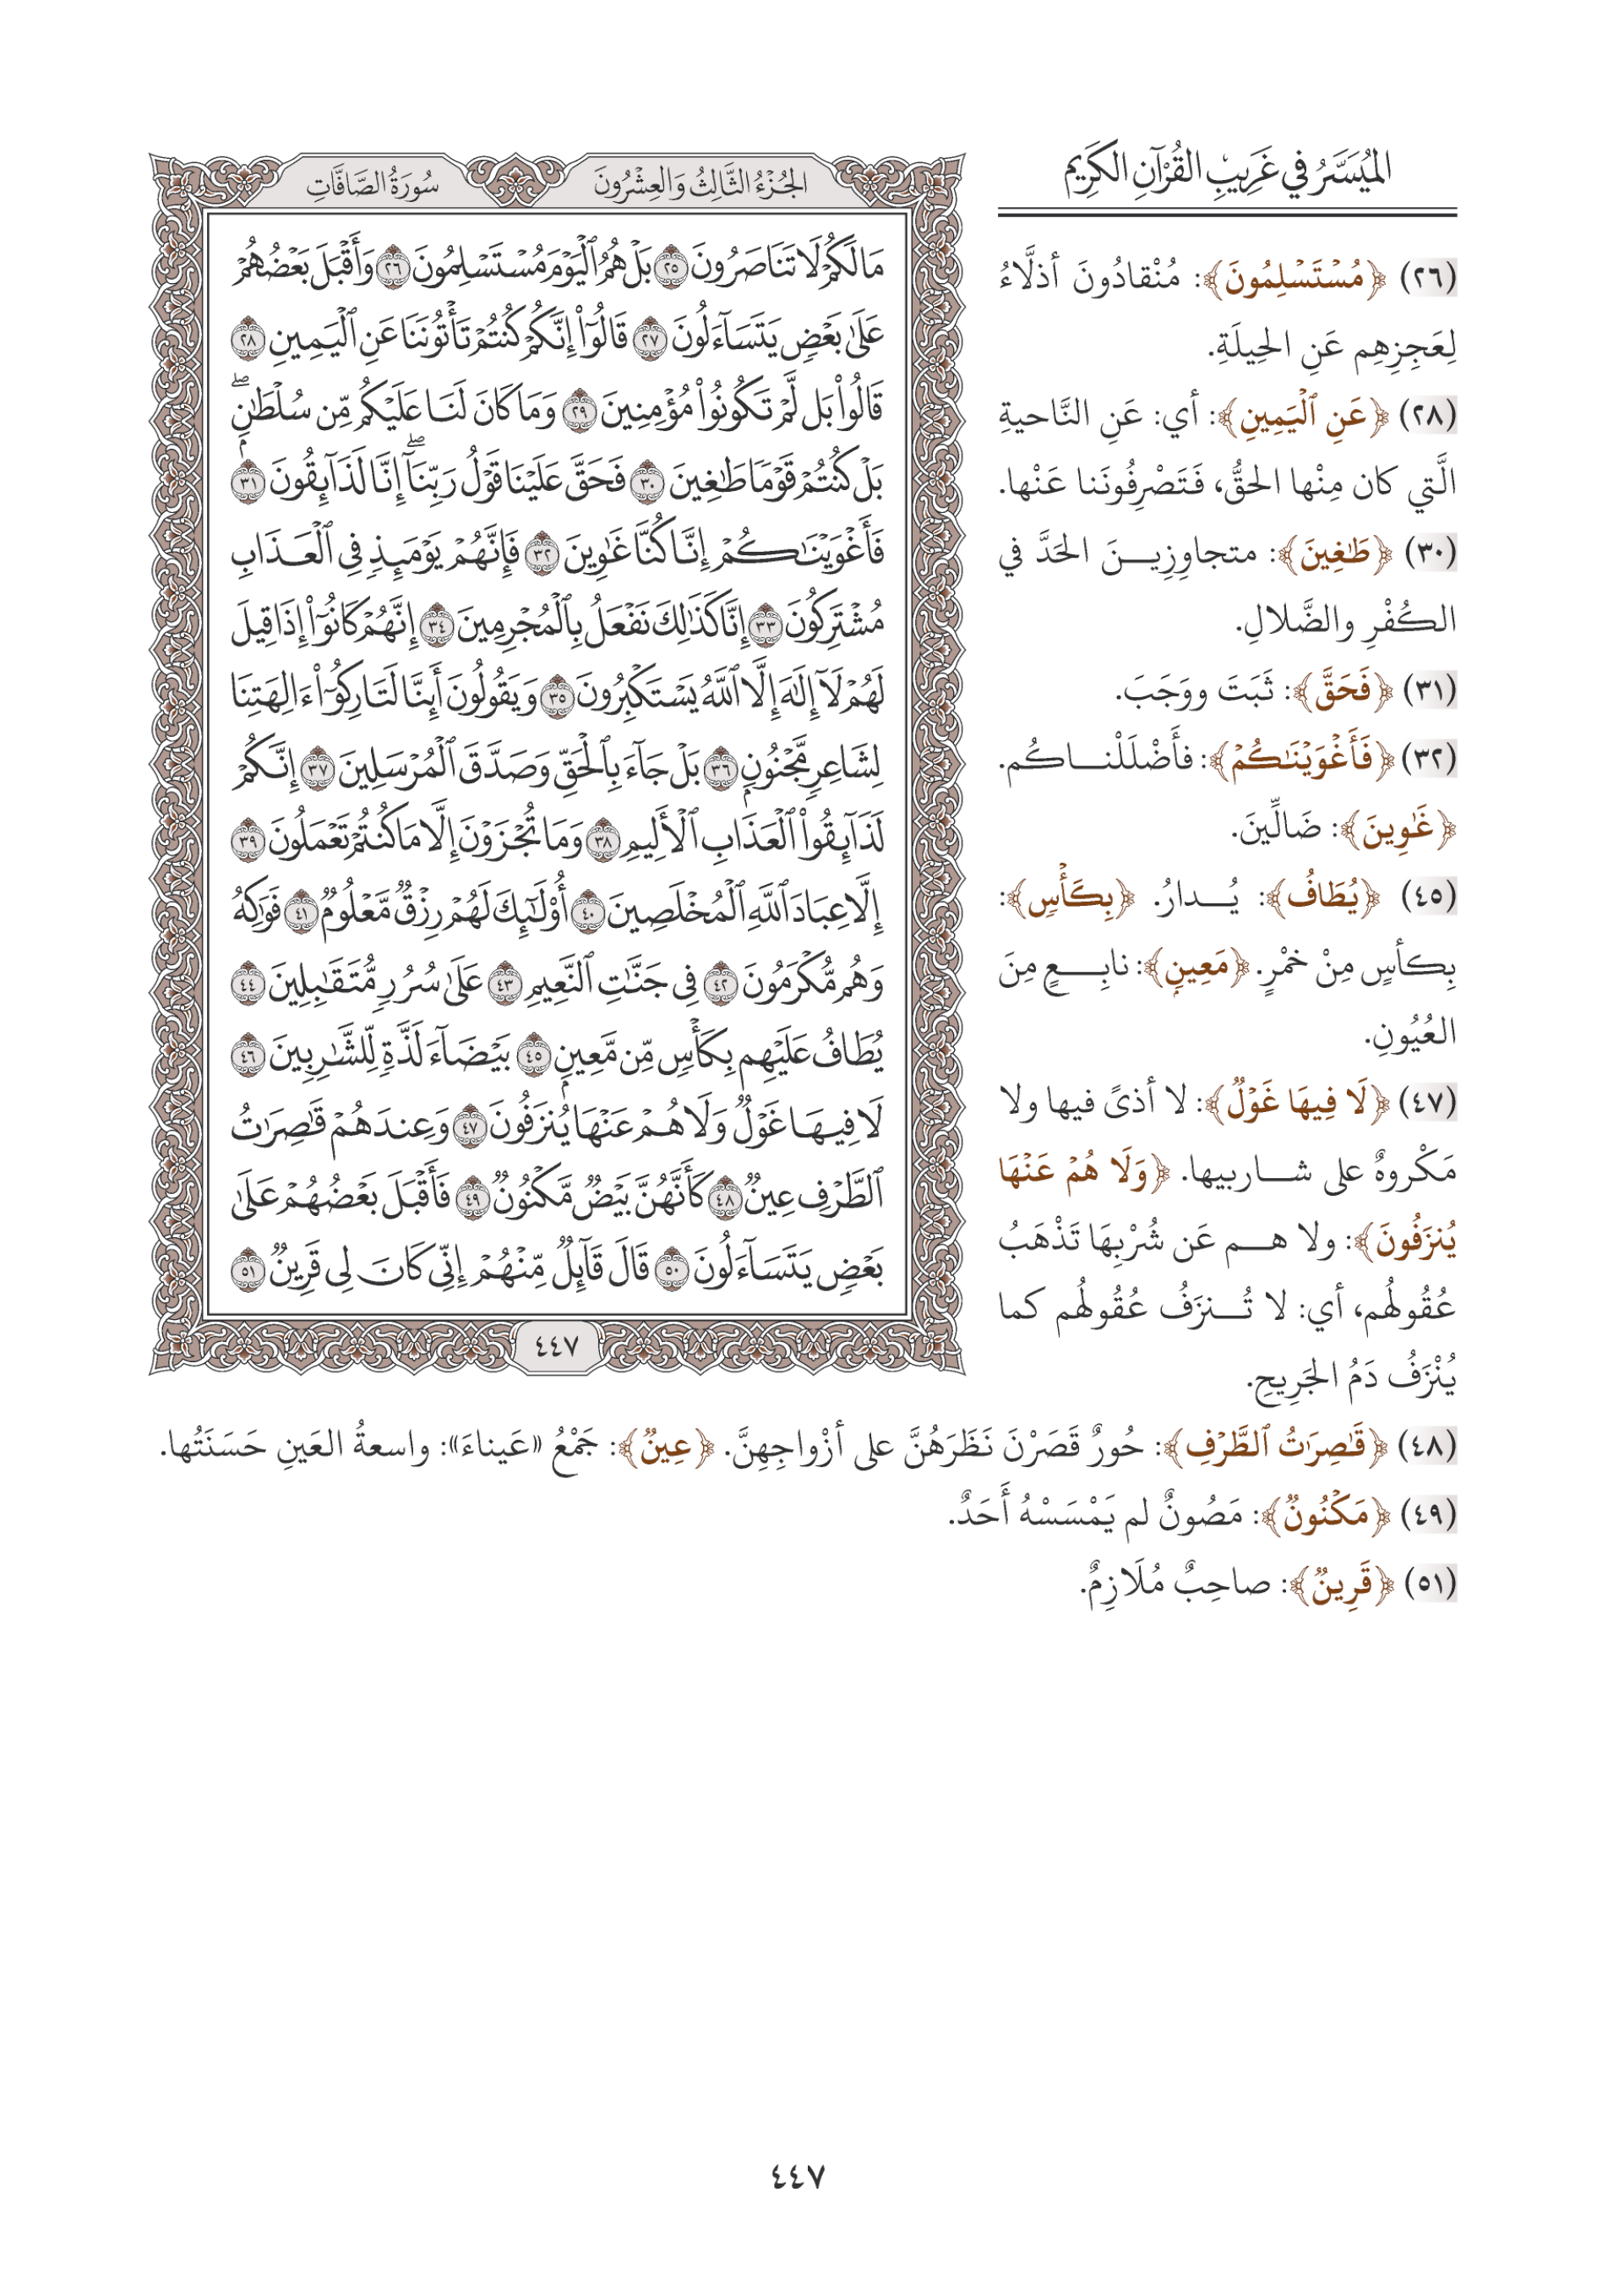 المُيَسَّرُ في غَرِيبِ القُرْآنِ الكَرِيمِ
(٢٦) ﴿مُسْتَسْلِمُونَ﴾: مُنْقادُونَ أذلَّاءُ
لِعَجِزِهِم عَنِ الحِيلَةِ.
(٢٨) ﴿عَنِ ٱلْيَمِينِ﴾: أي: عَنِ النَّاحيةِ
الَّتي كان مِنْها الحقُّ، فَتَصْرِفُونَنا عَنْها.
(٣٠) ﴿طَٰغِينَ﴾: متجاوِزِينَ الحَدَّ في
الكُفْرِ والضَّلالِ.
(٣١) ﴿فَحَقَّ﴾: ثَبَتَ ووَجَبَ.
(٣٢) ﴿فَأَغْوَيْنَٰكُمْ﴾: فأَضْلَلْناكُم.
﴿غَٰوِينَ﴾: ضَالِّينَ.
(٤٥) ﴿يُطَافُ﴾: يُدارُ. ﴿بِكَأْسٍ﴾:
بِكأسٍ مِنْ خمْرٍ. ﴿مَعِينٍ﴾: نابِعٍ مِنَ
العُيُونِ.
(٤٧) ﴿لَا فِيهَا غَوْلٌ﴾: لا أذىً فيها ولا
مَكْروهٌ على شاربيها. ﴿وَلَا هُمْ عَنْهَا
يُنزَفُونَ﴾: ولا هم عَن شُرْبِهَا تَذْهَبُ
عُقُولُهُم، أي: لا تُنزَفُ عُقُولُهُم كما
يُنْزَفُ دَمُ الجَرِيحِ.
الجُزْءُ الثَّالِثُ وَالعِشْرُونَ
سُورَةُ الصَّافَّاتِ
مَا لَكُمْ لَا تَنَاصَرُونَ ٢٥ بَلْ هُمُ ٱلْيَوْمَ مُسْتَسْلِمُونَ ٢٦ وَأَقْبَلَ بَعْضُهُمْ
عَلَىٰ بَعْضٍ يَتَسَآءَلُونَ ٢٧ قَالُوٓا۟ إِنَّكُمْ كُنتُمْ تَأْتُونَنَا عَنِ ٱلْيَمِينِ ٢٨
قَالُوا۟ بَل لَّمْ تَكُونُوا۟ مُؤْمِنِينَ ٢٩ وَمَا كَانَ لَنَا عَلَيْكُم مِّن سُلْطَٰنٍۭ ۖ
بَلْ كُنتُمْ قَوْمًا طَٰغِينَ ٣٠ فَحَقَّ عَلَيْنَا قَوْلُ رَبِّنَآ ۖ إِنَّا لَذَآئِقُونَ ٣١
فَأَغْوَيْنَٰكُمْ إِنَّا كُنَّا غَٰوِينَ ٣٢ فَإِنَّهُمْ يَوْمَئِذٍ فِى ٱلْعَذَابِ
مُشْتَرِكُونَ ٣٣ إِنَّا كَذَٰلِكَ نَفْعَلُ بِٱلْمُجْرِمِينَ ٣٤ إِنَّهُمْ كَانُوٓا۟ إِذَا قِيلَ
لَهُمْ لَآ إِلَٰهَ إِلَّا ٱللَّهُ يَسْتَكْبِرُونَ ٣٥ وَيَقُولُونَ أَئِنَّا لَتَارِكُوٓا۟ ءَالِهَتِنَا
لِشَاعِرٍ مَّجْنُونٍۭ ٣٦ بَلْ جَآءَ بِٱلْحَقِّ وَصَدَّقَ ٱلْمُرْسَلِينَ ٣٧ إِنَّكُمْ
لَذَآئِقُوا۟ ٱلْعَذَابِ ٱلْأَلِيمِ ٣٨ وَمَا تُجْزَوْنَ إِلَّا مَا كُنتُمْ تَعْمَلُونَ ٣٩
إِلَّا عِبَادَ ٱللَّهِ ٱلْمُخْلَصِينَ ٤٠ أُو۟لَٰٓئِكَ لَهُمْ رِزْقٌ مَّعْلُومٌ ٤١ فَوَٰكِهُ
وَهُم مُّكْرَمُونَ ٤٢ فِى جَنَّٰتِ ٱلنَّعِيمِ ٤٣ عَلَىٰ سُرُرٍ مُّتَقَٰبِلِينَ ٤٤
يُطَافُ عَلَيْهِم بِكَأْسٍ مِّن مَّعِينٍۭ ٤٥ بَيْضَآءَ لَذَّةٍ لِّلشَّٰرِبِينَ ٤٦
لَا فِيهَا غَوْلٌ وَلَا هُمْ عَنْهَا يُنزَفُونَ ٤٧ وَعِندَهُمْ قَٰصِرَٰتُ
ٱلطَّرْفِ عِينٌ ٤٨ كَأَنَّهُنَّ بَيْضٌ مَّكْنُونٌ ٤٩ فَأَقْبَلَ بَعْضُهُمْ عَلَىٰ
بَعْضٍ يَتَسَآءَلُونَ ٥٠ قَالَ قَآئِلٌ مِّنْهُمْ إِنِّى كَانَ لِى قَرِينٌ ٥١
٤٤٧
(٤٨) ﴿قَٰصِرَٰتُ ٱلطَّرْفِ﴾: حُورٌ قَصَرْنَ نَظَرَهُنَّ على أزْواجِهِنَّ. ﴿عِينٌ﴾: جَمْعُ «عَيناءَ»: واسعةُ العَينِ حَسَنَتُها.
(٤٩) ﴿مَكْنُونٌ﴾: مَصُونٌ لم يَمْسَسْهُ أَحَدٌ.
(٥١) ﴿قَرِينٌ﴾: صاحِبٌ مُلَازِمٌ.
٤٤٧